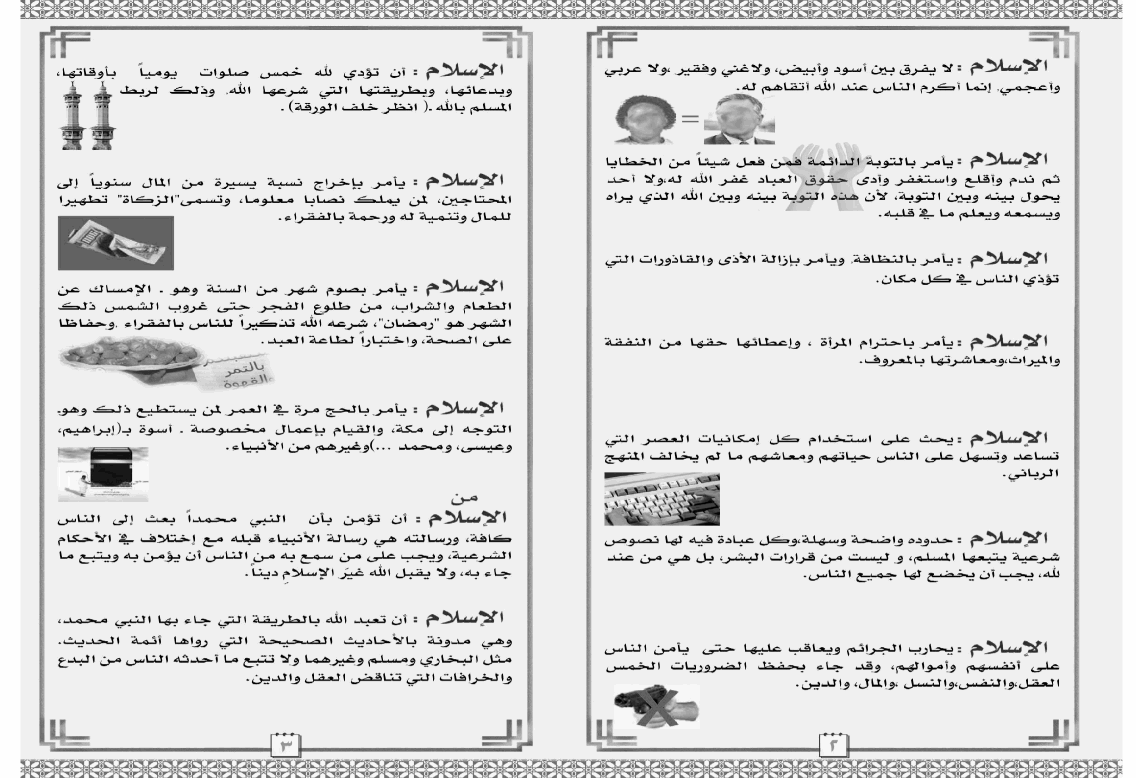 الإسلام : لا يفرق بين أسود وأبيض، ولاغني وفقير ،ولا عربي
وأعجمي. إنما أكرم الناس عند الله أتقاهم له.
=
الإسلام : يأمر بالتوبة الدائمة فمن فعل شيئاً من الخطايا
ثم ندم وأقلع واستغفر وأدى حقوق العباد غفر الله له،ولا أحد
يحول بينه وبين التوبة، لأن هذه التوبة بينه وبين الله الذي يراه
ويسمعه ويعلم ما في قلبه.
الإسلام : يأمر بالنظافة. ويأمر بإزالة الأذى والقاذورات التي
تؤذي الناس في كل مكان.
الإسلام : يأمر باحترام المرأة ، وإعطائها حقها من النفقة
والميراث،ومعاشرتها بالمعروف.
الإسلام : يحث على استخدام كل إمكانيات العصر التي
تساعد وتسهل على الناس حياتهم ومعاشهم ما لم يخالف المنهج
الرباني.
الإسلام : حدوده واضحة وسهلة،وكل عبادة فيه لها نصوص
شرعية يتبعها المسلم، و ليست من قرارات البشر، بل هي من عند
لله، يجب أن يخضع لها جميع الناس.
الإسلام : يحارب الجرائم ويعاقب عليها حتى يأمن الناس
على أنفسهم وأموالهم، وقد جاء بحفظ الضروريات الخمس
العقل،والنفس،والنسل ،والمال، والدين.
٢
الإسلام : أن تؤدي لله خمس صلوات يومياً بأوقاتها،
وبدعائها، وبطريقتها التي شرعها الله. وذلك لربط
المسلم بالله .( انظر خلف الورقة) .
الإسلام : يأمر بإخراج نسبة يسيرة من المال سنوياً إلى
المحتاجين، لمن يملك نصابا معلوما، وتسمى"الزكاة" تطهيرا
للمال وتنمية له ورحمة بالفقراء.
الإسلام : يأمر بصوم شهر من السنة وهو . الإمساك عن
الطعام والشراب، من طلوع الفجر حتى غروب الشمس ذلك
الشهر هو "رمضان"، شرعه الله تذكيراً للناس بالفقراء .وحفاظا
على الصحة، واختباراً لطاعة العبد.
بالتمر
والقهوة
الإسلام : يأمر بالحج مرة في العمر لمن يستطيع ذلك وهو.
التوجه إلى مكة، والقيام بإعمال مخصوصة . أسوة بـ(إبراهيم،
وعيسى، ومحمد ...)وغيرهم من الأنبياء.
من
الإسلام : أن تؤمن بأن النبي محمداً بعث إلى الناس
كافة، ورسالته هي رسالة الأنبياء قبله مع إختلاف في الأحكام
الشرعية، ويجب على من سمع به من الناس أن يؤمن به ويتبع ما
جاء به، ولا يقبل الله غيَر الإسلامِ ديناً.
الإسلام : أن تعبد الله بالطريقة التي جاء بها النبي محمد،
وهي مدونة بالأحاديث الصحيحة التي رواها أئمة الحديث.
مثل البخاري ومسلم وغيرهما ولا تتبع ما أحدثه الناس من البدع
والخرافات التي تناقض العقل والدين.
٣